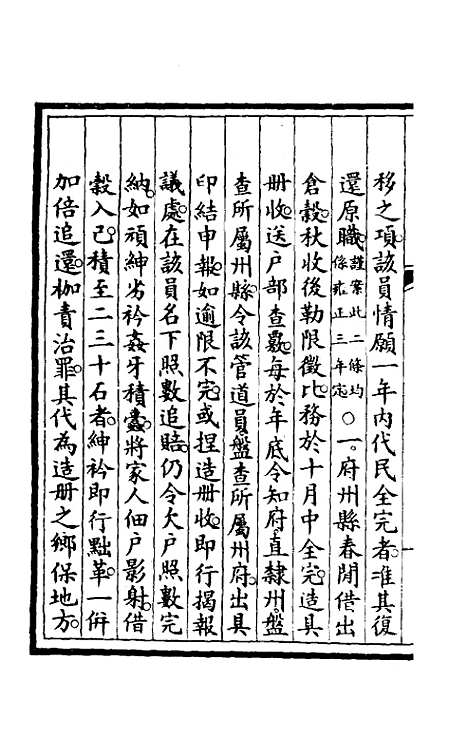 移之項。該員情願一年内代民全完者。准其復
還原職。謹案此二條均係雍正三年定○一。府州縣春間借出
倉穀。秋收後勒限徵比。務於十月中全完。造具
冊收。送戶部查覈。每於年底。令知府。直隸州。盤
查所屬州縣。令該管道員。盤查所屬州府。出具
印結申報。如逾限不完。或捏造冊收。即行揭報
議處。在該員名下照數追賠。仍令大戶照數完
納。如頑紳劣衿。姦牙積蠹。將家人佃戶影射。借
穀入己。積至二三十石者。紳衿即行黜革。一併
加倍追還。枷責治罪。其代為造冊之鄉保地方。